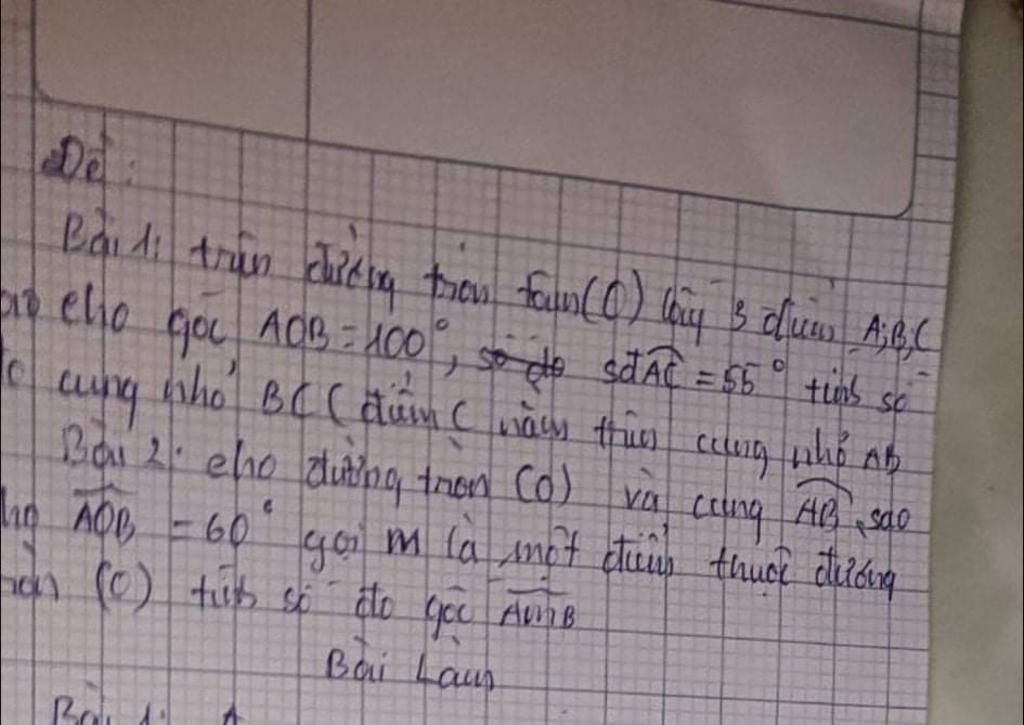 Đề:
Bài 1: trên đường tròn tâm (O) lấy 3 điểm A;B,C
cho góc AOB = 100°, sđAC = 55° tính số
cung nhỏ BC (điểm C nằm trên cung nhỏ AB
Bài 2: cho đường tròn (O) và cung AB sao
AOB = 60° gọi M là một điểm thuộc đường
(O) tính số đo góc AMB
Bài Làm
Bài 1: A